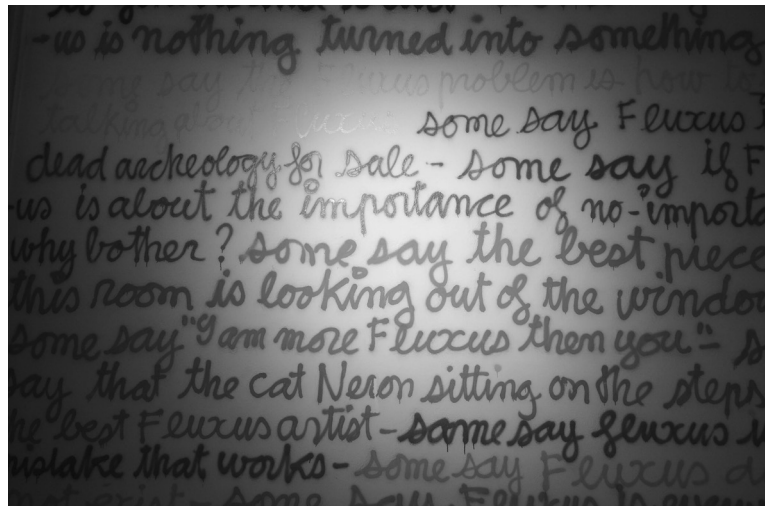 -us is nothing turned into something
some say the Fluxus problem is how to
talking about Fluxus some say Fluxus
dead archeology for sale - some say if F
-us is about the importance of no-importa
why bother? some say the best piece
this room is looking out of the window
some say "I am more Fluxus then you" - s
say that the cat Neron sitting on the steps
he best Fluxus artist - some say fluxus
mistake that works - some say Fluxus d
not exist - some say Fluxus is